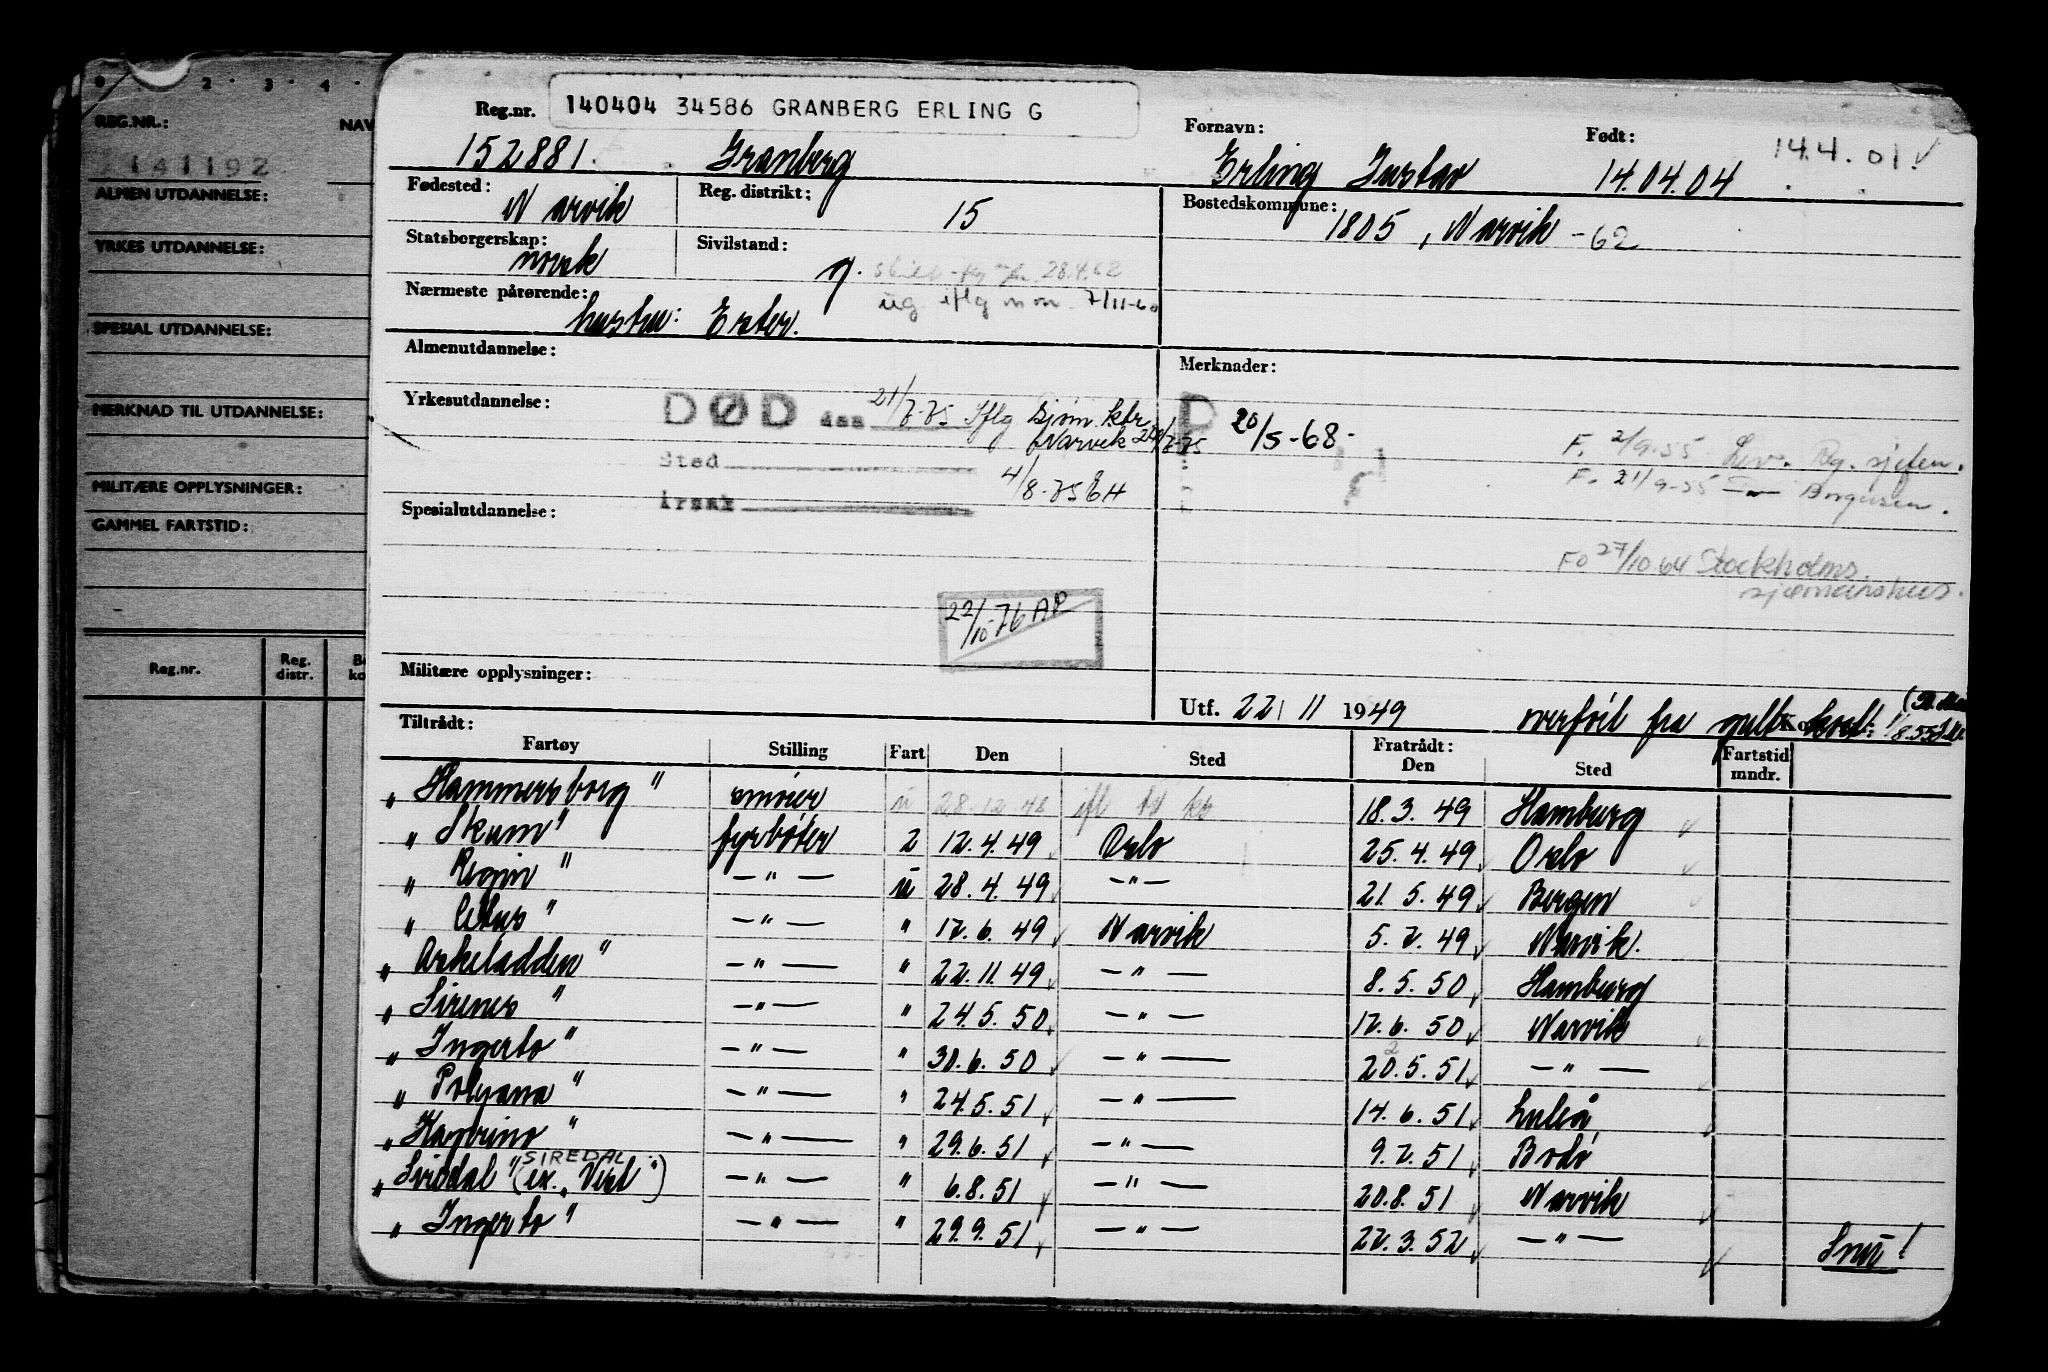 0 · 2 · 3 · 4 ·
REG.NR.: NAV
1141192
ALMEN UTDANNELSE:
YRKES UTDANNELSE:
SPESIAL UTDANNELSE:
MERKNAD TIL UTDANNELSE:
MILITÆRE OPPLYSNINGER:
GAMMEL FARTSTID:
Reg.nr. Reg. distr.
Reg.nr. 140404 34586 GRANBERG ERLING G
Fornavn: Født: 14.4.01
152881. Granberg Erling Gustav 14.04.04
Fødested: Narvik Reg. distrikt: 15 Bostedskommune: 1805, Narvik -62
Statsborgerskap: norsk Sivilstand: g. 28.4.62
ug iflg møn. 7/11-60
Nærmeste pårørende: hustru: Ester.
Almenutdannelse: Merknader:
Yrkesutdannelse: DØD den 21/7-75 Iflg Sjøm.ktr
Narvik 24/7-75
P 20/5-68-
Sted
4/8-75 EH
Årsak
F. 2/9-55 Reg. sjefen.
F. 21/9-55 Borgersen.
Spesialutdannelse:
FO 27/10 64 Stockholms
sjømannshus.
22/10-76 AP
Militære opplysninger:
Utf. 22/11 1949 overført fra gult kort: 1/8.55
Tiltrådt: Fratrådt:
Fartøy Stilling Fart Den Sted Den Sted Fartstid mndr.
"Hammersborg" smører u 28.12.48 ifl 18.3.49 Hamburg
"Skum" fyrbøter 2 12.4.49 Oslo 25.4.49 Oslo
"Regin" — " — u 28.4.49 — " — 21.5.49 Bergen
— " — " 17.6.49 Narvik 5.7.49 Narvik.
"Askeladden" — " — " 22.11.49 — " — 8.5.50 Hamburg
"Sirenes" — " — " 24.5.50 — " — 17.6.50 Narvik
"Ingerto" — " — " 30.6.50 — " — 20.5.51 — " —
2
"Polyana" — " — " 24.5.51 — " — 14.6.51 Luleå
— " — " 29.6.51 — " — 9.7.51 Bodø
SIREDAL
"Siredal" (ex. ") — " — " 6.8.51 — " — 20.8.51 Narvik
"Ingerto" — " — " 29.9.51 — " — 27.3.52 — " —
Snu!